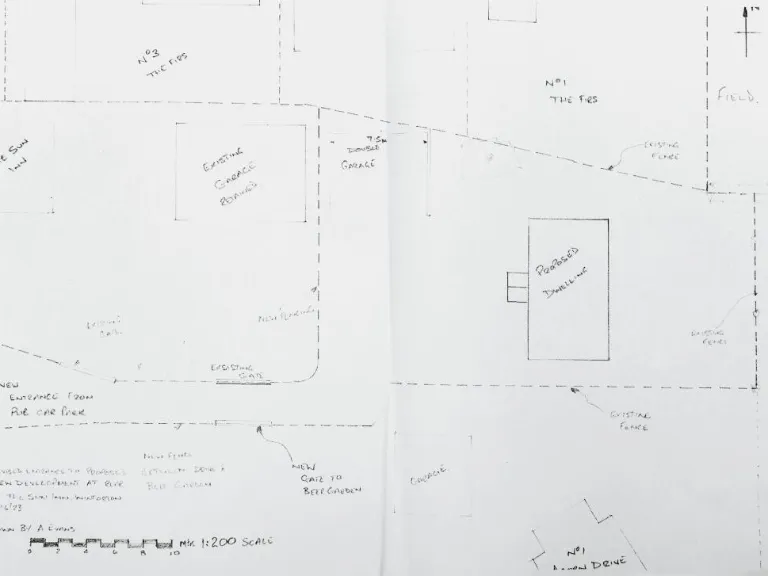 N
N°3
THE FIRS
N°1
THE FIRS
FIELD.
SUN
INN
EXISTING
GARAGE
7.5m
DOUBLE
GARAGE
EXISTING
FENCE
PROPOSED
DWELLING
NEW FENCING
EXISTING
FENCE
EXSISTING
GATE
NEW
ENTRANCE FROM
PUB CAR PARK
EXISTING
FENCE
NEW
GATE TO
BEER GARDEN
GARAGE
ENTRANCE TO PROPOSED
NEW DEVELOPMENT AT REAR
SUN INN
NEW FENCE
BEER GARDEN
BY A EVANS
0 2 4 6 8 10 MTR 1:200 SCALE
N°1
DRIVE